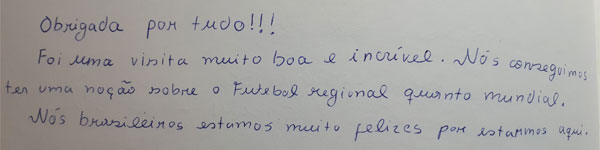 Obrigada por tudo!!!
Foi uma visita muito boa e incrível. Nós conseguimos
ter uma noção sobre o Futebol regional quanto mundial.
Nós brasileiros estamos muito felizes por estarmos aqui.